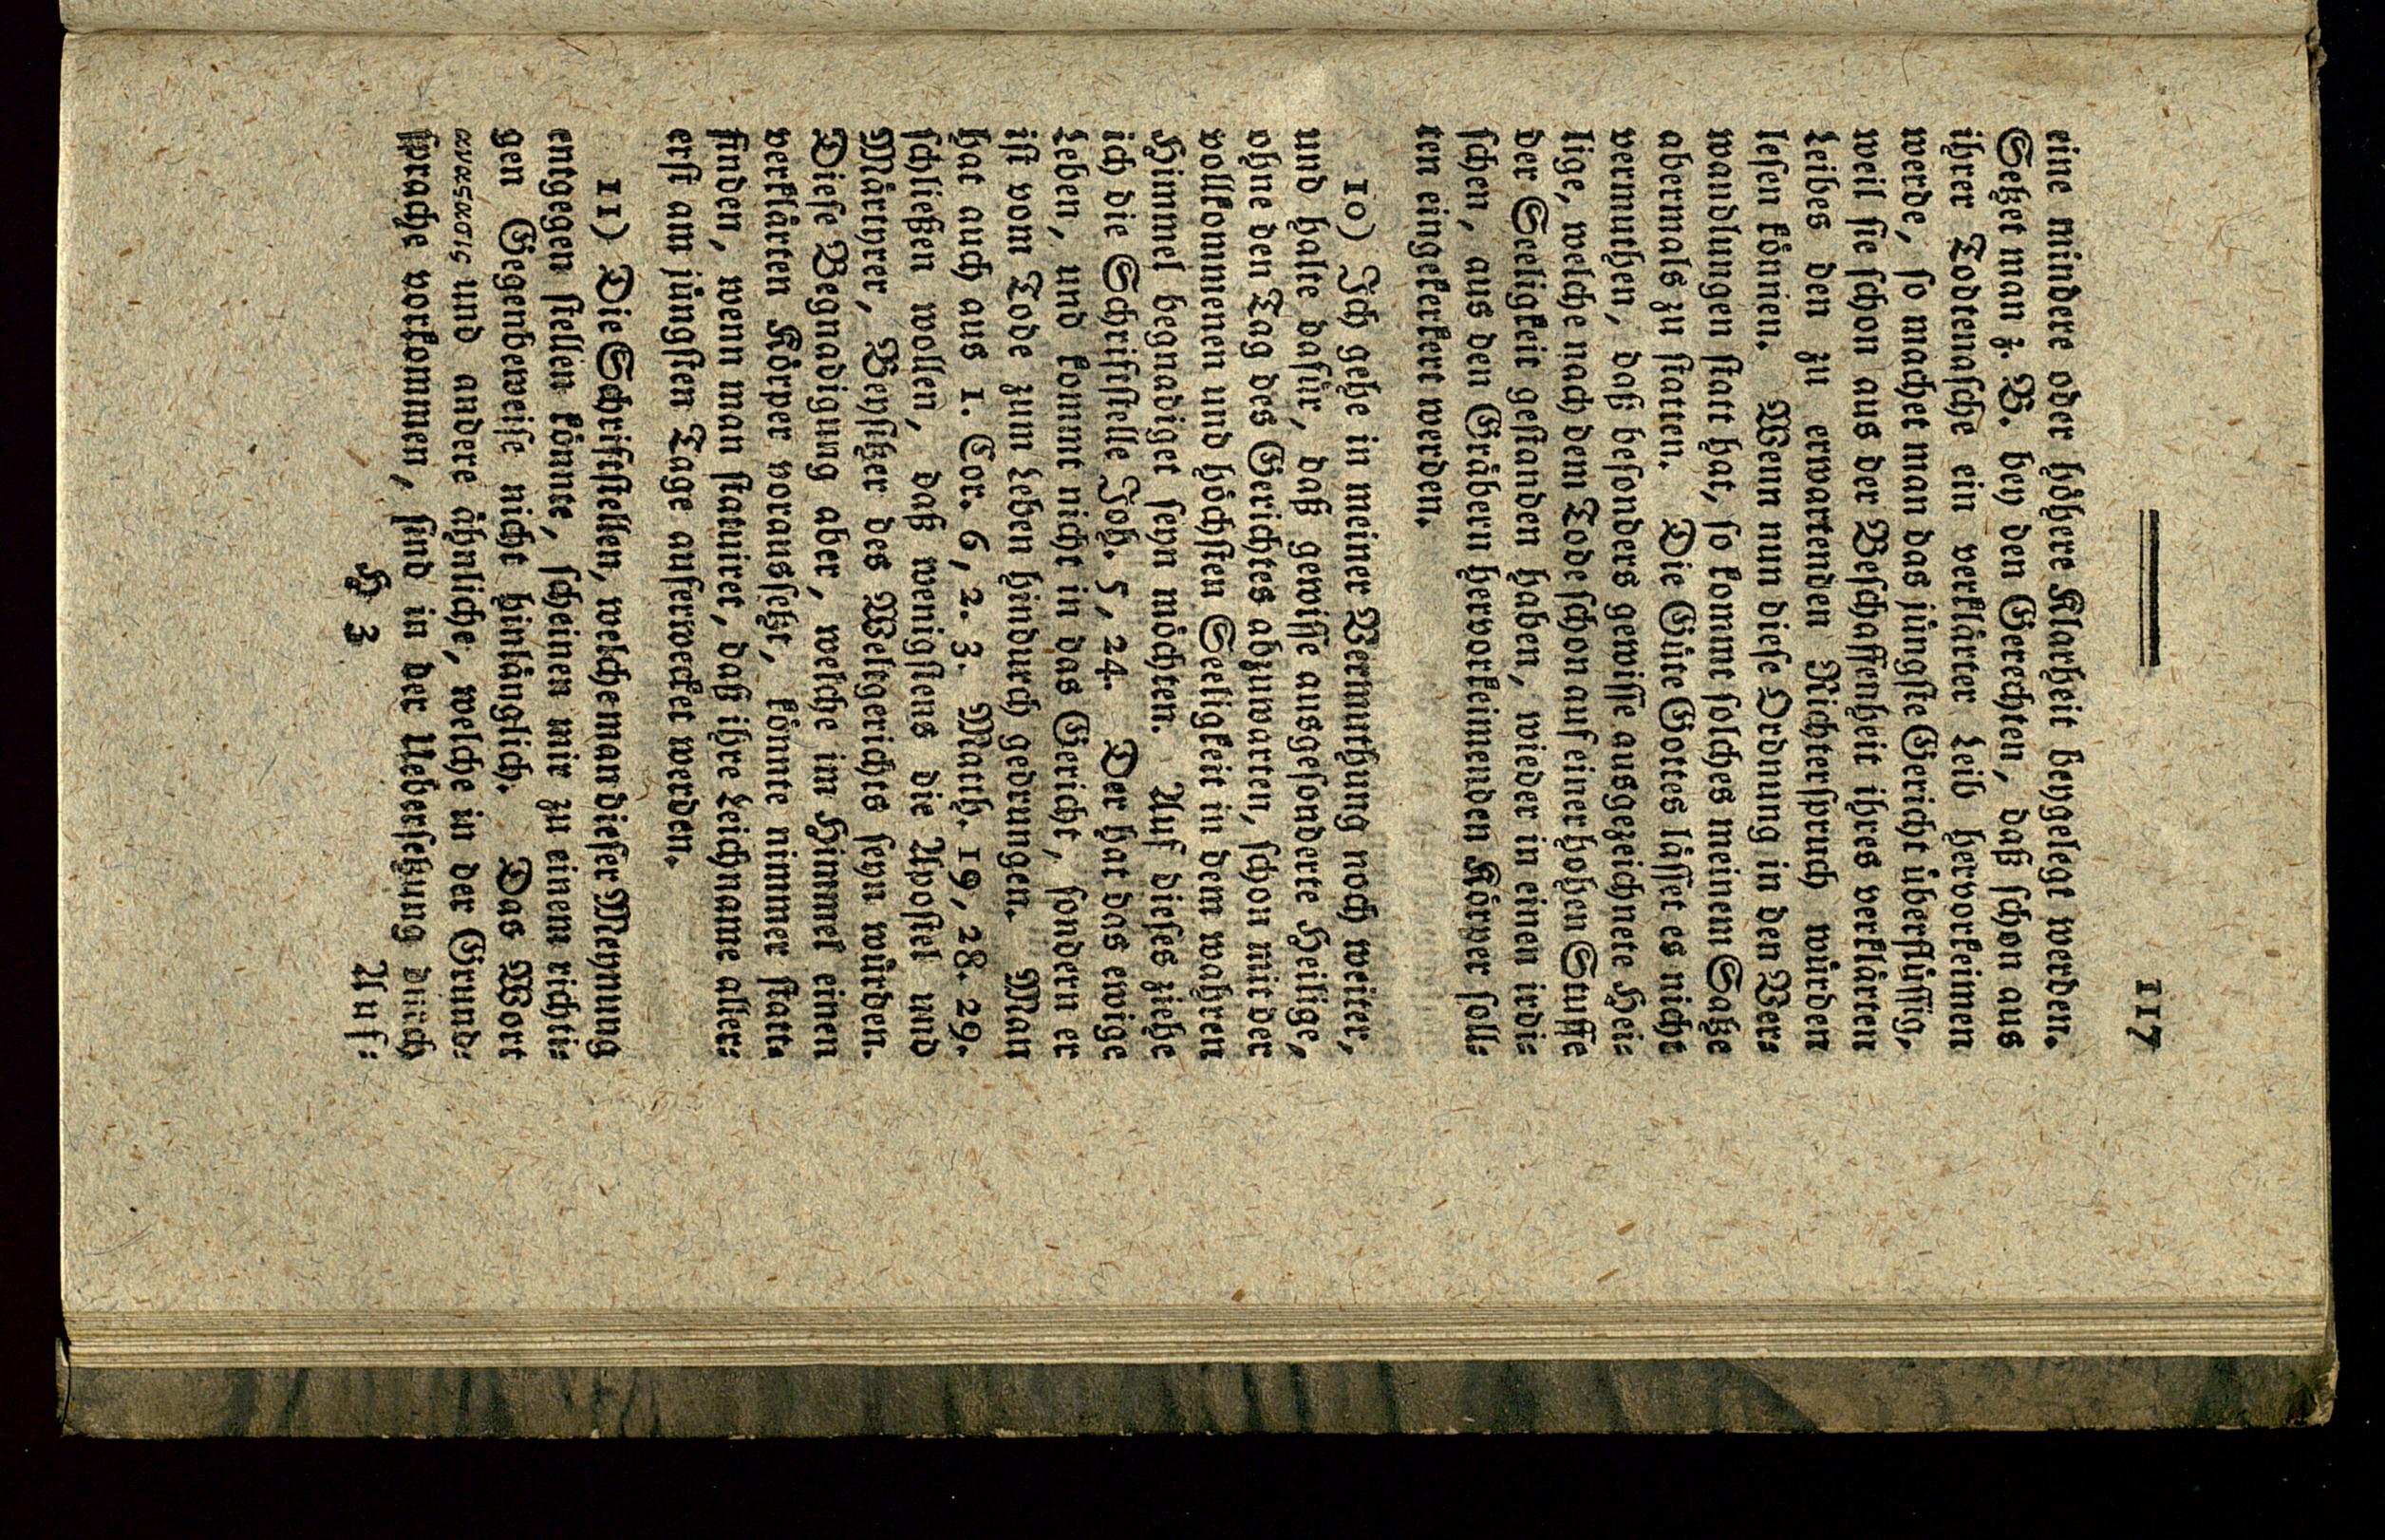 117
eine mindere oder höhere Klarheit beygelegt werden.
Setzet man z. B. bey den Gerechten, daß schon aus
ihrer Todtenasche ein verklärter Leib hervorkeimen
werde, so machet man das jüngste Gericht überflüssig,
weil sie schon aus der Beschaffenheit ihres verklärten
Leibes den zu erwartenden Richterspruch würden
lesen können. Wenn nun diese Ordnung in den Ver⸗
wandlungen statt hat, so kommt solches meinem Satze
abermals zu statten. Die Güte Gottes lässet es nicht
vermuthen, daß besonders gewisse ausgezeichnete Hei⸗
lige, welche nach dem Tode schon auf einer hohen Stuffe
der Seeligkeit gestanden haben, wieder in einen irdi⸗
schen, aus den Gräbern hervorkeimenden Körper soll⸗
ten eingekerkert werden.
10) Ich gehe in meiner Vermuthung noch weiter,
und halte dafür, daß gewisse ausgesonderte Heilige,
ohne den Tag des Gerichtes abzuwarten, schon mit der
vollkommenen und höchsten Seeligkeit in dem wahren
Himmel begnadiget seyn möchten. Auf dieses ziehe
ich die Schriftstelle Joh. 5, 24. Der hat das ewige
Leben, und kommt nicht in das Gericht, sondern er
ist vom Tode zum Leben hindurch gedrungen. Man
hat auch aus 1. Cor. 6, 2. 3. Matth. 19, 28. 29.
schließen wollen, daß wenigstens die Apostel und
Märtyrer, Beysitzer des Weltgerichts seyn würden.
Diese Begnadigung aber, welche im Himmel einen
verklärten Körper voraussetzt, könnte nimmer statt
finden, wenn man statuiret, daß ihre Leichname aller⸗
erst am jüngsten Tage auferwecket werden.
11) Die Schriftstellen, welche man dieser Meynung
entgegen stellen könnte, scheinen mir zu einem richti⸗
gen Gegenbeweise nicht hinlänglich. Das Wort
αναςασις und andere ähnliche, welche in der Grund⸗
sprache vorkommen, sind in der Uebersetzung durch
H 3
Auf⸗